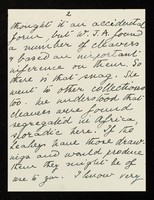 2
thought it an accidental
form but W. J. A. found
a number of cleavers
& based an important
inference on them. So
there is that snag. He
went to other collections
too. He understood that
cleavers were found
segregated in Africa,
sporadic here. If the
Leakeys have those draw-
ings and would produce
them they might be of
use to you. I know very